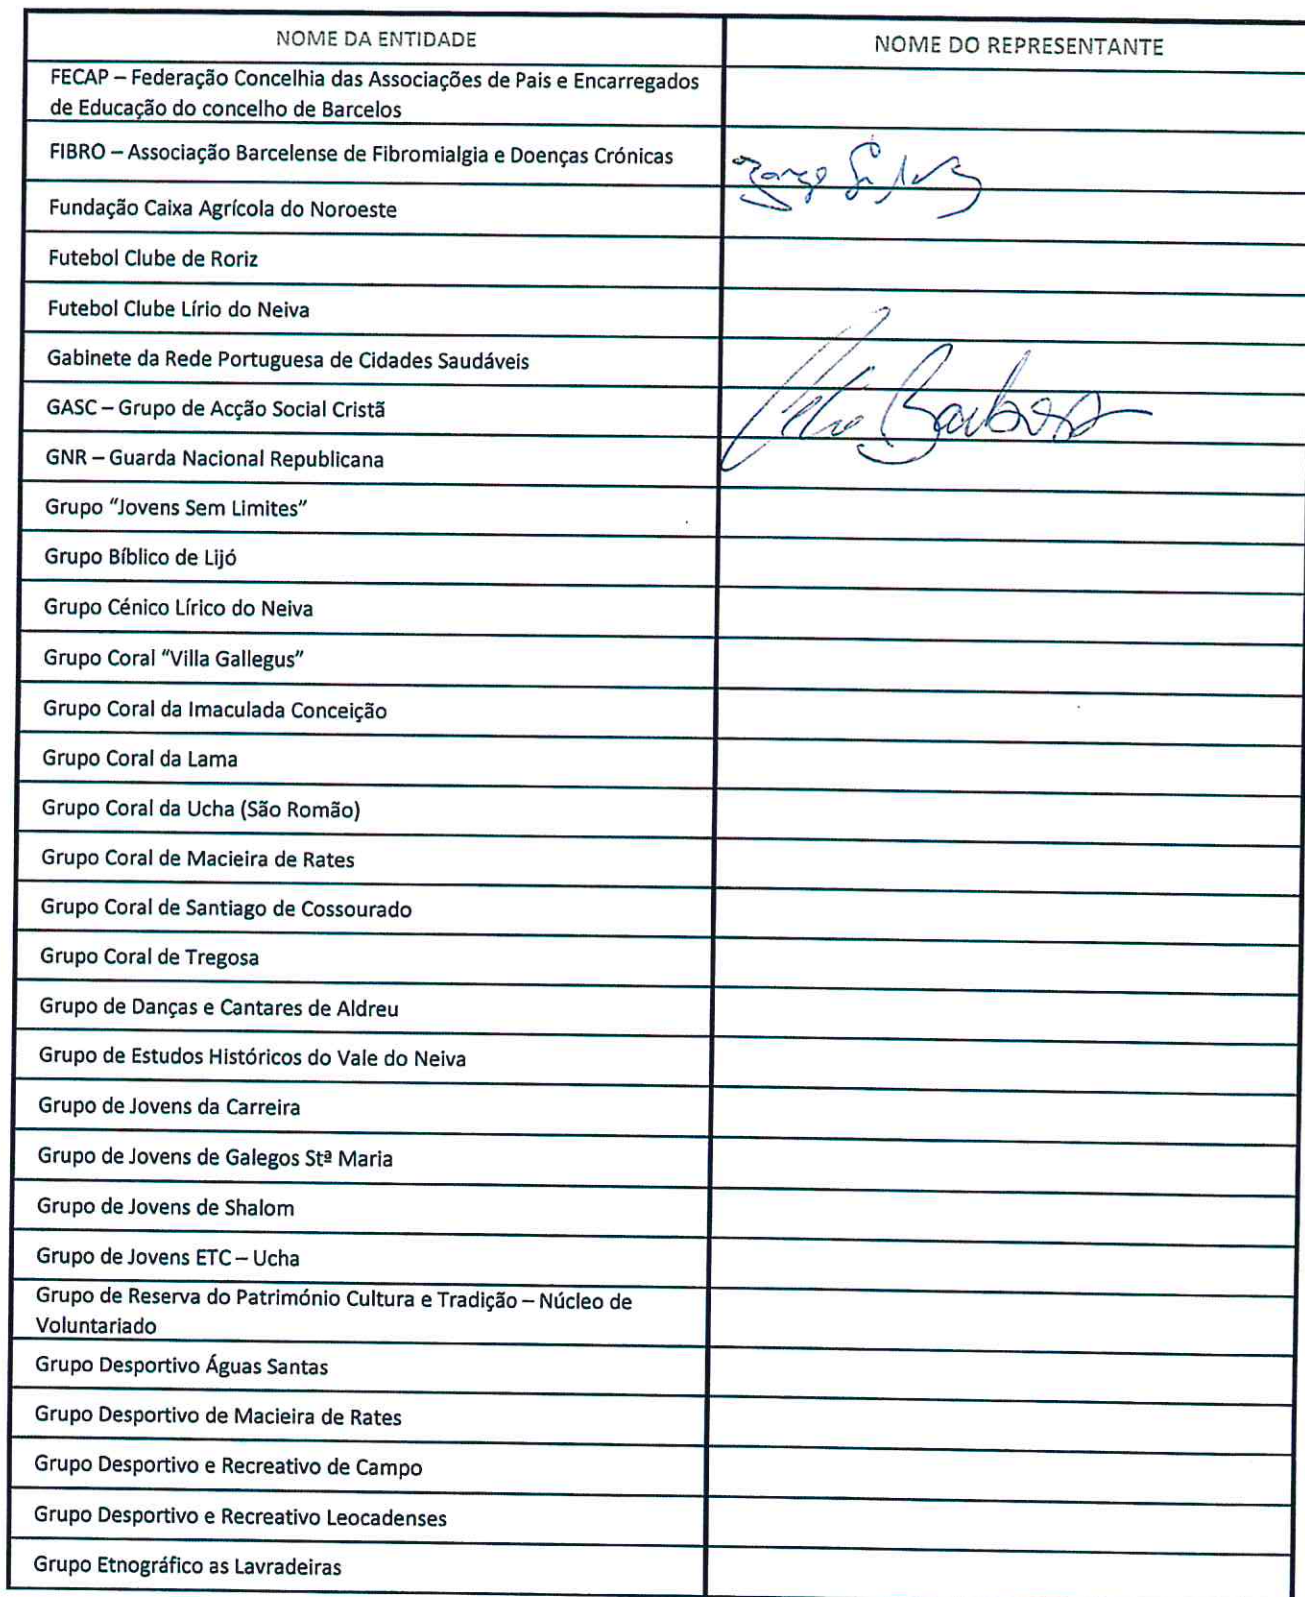 NOME DA ENTIDADE NOME DO REPRESENTANTE
FECAP – Federação Concelhia das Associações de Pais e Encarregados
de Educação do concelho de Barcelos
FIBRO – Associação Barcelense de Fibromialgia e Doenças Crónicas Silva
Fundação Caixa Agrícola do Noroeste
Futebol Clube de Roriz
Futebol Clube Lírio do Neiva
Gabinete da Rede Portuguesa de Cidades Saudáveis
GASC – Grupo de Acção Social Cristã Barbosa
GNR – Guarda Nacional Republicana
Grupo “Jovens Sem Limites”
Grupo Bíblico de Lijó
Grupo Cénico Lírico do Neiva
Grupo Coral “Villa Gallegus”
Grupo Coral da Imaculada Conceição
Grupo Coral da Lama
Grupo Coral da Ucha (São Romão)
Grupo Coral de Macieira de Rates
Grupo Coral de Santiago de Cossourado
Grupo Coral de Tregosa
Grupo de Danças e Cantares de Aldreu
Grupo de Estudos Históricos do Vale do Neiva
Grupo de Jovens da Carreira
Grupo de Jovens de Galegos Stª Maria
Grupo de Jovens de Shalom
Grupo de Jovens ETC – Ucha
Grupo de Reserva do Património Cultura e Tradição – Núcleo de
Voluntariado
Grupo Desportivo Águas Santas
Grupo Desportivo de Macieira de Rates
Grupo Desportivo e Recreativo de Campo
Grupo Desportivo e Recreativo Leocadenses
Grupo Etnográfico as Lavradeiras